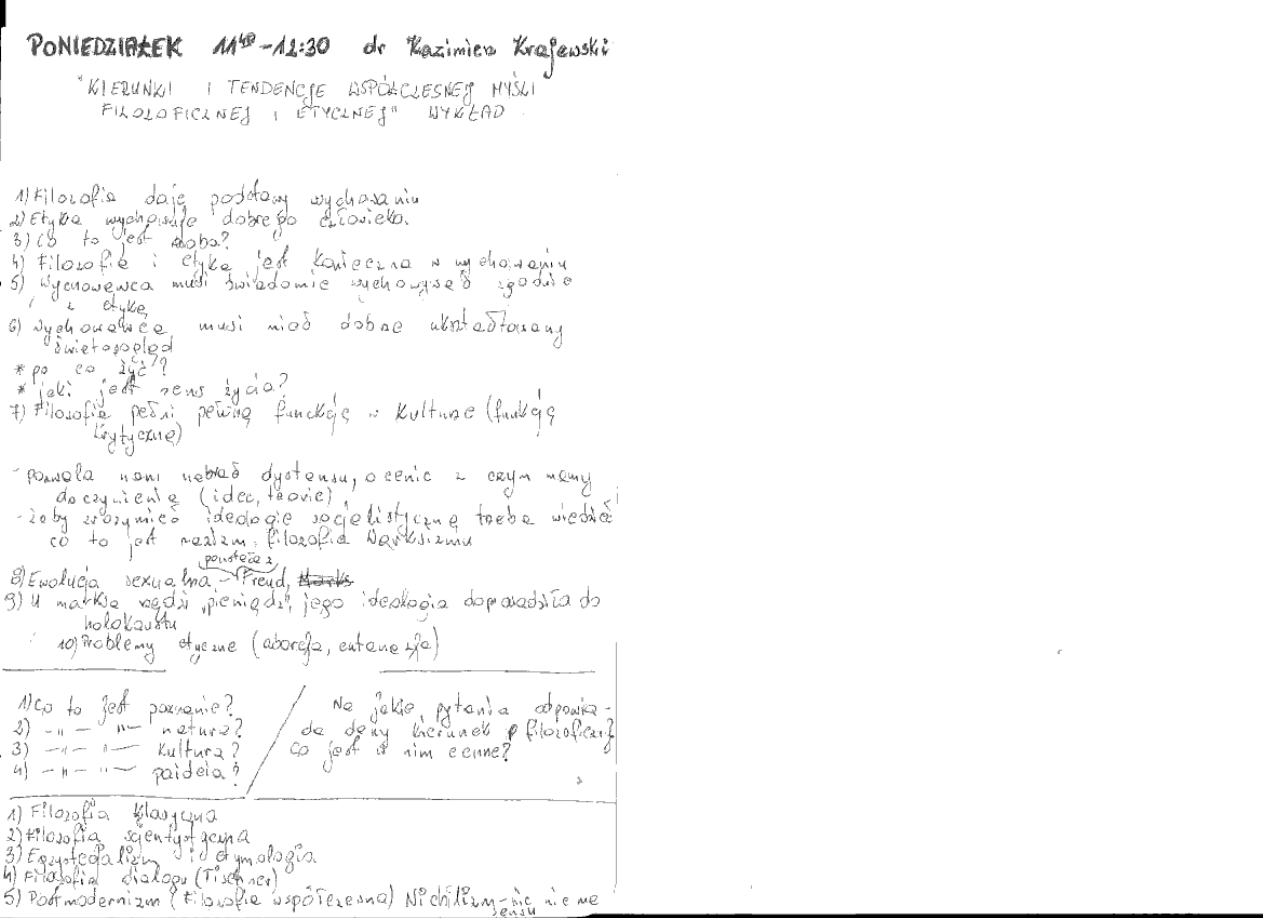 PONIEDZIAŁEK 11⁴⁰-12:30 dr Kazimierz Krajewski
"KIERUNKI I TENDENCJE WSPÓŁCZESNEJ MYŚLI
FILOZOFICZNEJ I ETYCZNEJ" WYKŁAD
1) Filozofia daje podstawy wychowaniu
2) Etyka wychowuje dobrego człowieka.
3) Co to jest osoba?
4) Filozofia i etyka jest konieczna w wychowaniu
5) Wychowawca musi świadomie wychowywać zgodnie
z etyką
6) Wychowawca musi mieć dobrze ukształtowany
światopogląd
* po co żyć?
* jaki jest sens życia?
7) Filozofia pełni pewną funckję w kulturze (funkcję
krytyczną)
- pozwala nam nabrać dystansu, ocenic z czym mamy
do czynienia (idee, teorie)
- żeby zrozumieć ideologie socjalistyczną trzeba wiedzieć
co to jest marizm, filozofia Marksizmu
powstała z
8) Ewolucja sexualna - Freud, Marks
9) U marksa rządzi „pieniądz", jego ideologia doprowadziła do
holokaustu
10) Problemy etyczne (aborcja, eutanazja)
1) Co to jest poznanie?
2) -"- "- natura?
3) -"- "- kultura?
4) -"- "- paideia?
Na jakie pytania odpowia-
da dany kierunek filozoficzny?
Co jest w nim cenne?
1) Filozofia klasyczna
2) Filozofia scjentystyczna
3) Egzystecjalizm i etymologia
4) Filozofia dialogu (Tischner)
5) Postmodernizm (Filozofia współczesna) Nichilizm - nic nie ma
sensu